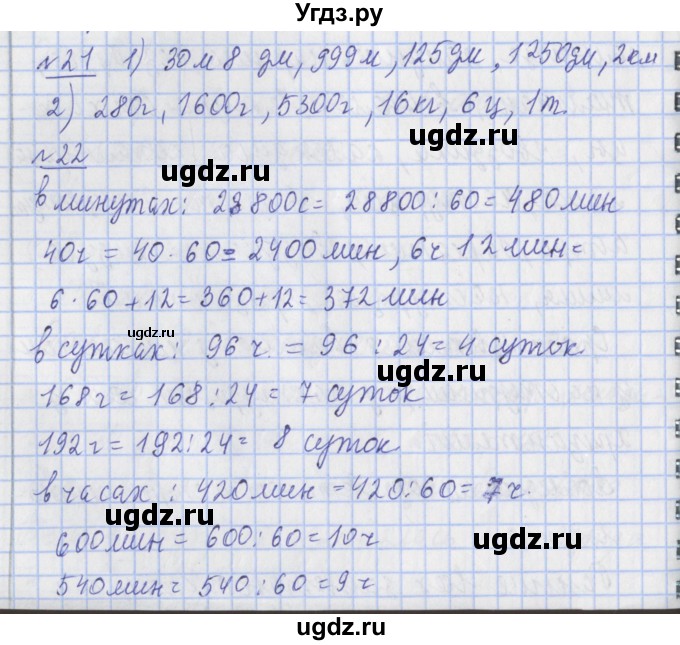 Угдз.ру
№21 1) 30м 8 дм, 999м, 125дм, 1250дм, 2км
2) 280г, 1600г, 5300г, 16кг, 6ц, 1т.
ugdz.ru
№22
ugdz.ru
в минутах: 28800с = 28800:60 = 480мин
40ч = 40·60 = 2400мин, 6ч 12мин =
6·60+12 = 360+12 = 372мин
ugdz.ru
в сутках: 96ч. = 96:24 = 4 суток
ugdz.ru
168ч = 168:24 = 7 суток
192ч = 192:24 = 8 суток
в часах: 420мин = 420:60 = 7ч.
ugdz.ru
600мин = 600:60 = 10ч
ugdz.ru
540мин = 540:60 = 9ч
ugdz.ru